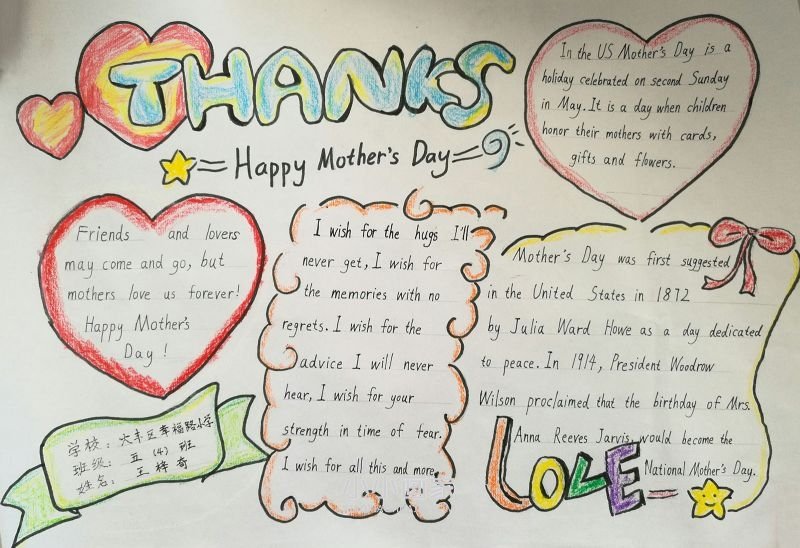 THANKS
Happy Mother's Day
In the US Mother's Day is a
holiday celebrated on second Sunday
in May. It is a day when children
honor their mothers with cards,
gifts and flowers.
Friends and lovers
may come and go, but
mothers love us forever!
Happy Mother's
Day!
I wish for the hugs I'll
never get, I wish for
the memories with no
regrets. I wish for the
advice I will never
hear, I wish for your
strength in time of fear.
I wish for all this and more.
Mother's Day was first suggested
in the United States in 1872
by Julia Ward Howe as a day dedicated
to peace. In 1914, President Woodrow
Wilson proclaimed that the birthday of Mrs.
Anna Reeves Jarvis, would become the
National Mother's Day.
LOVE
学校：大丰区幸福路小学
班级：五（4）班
姓名：王梓奇